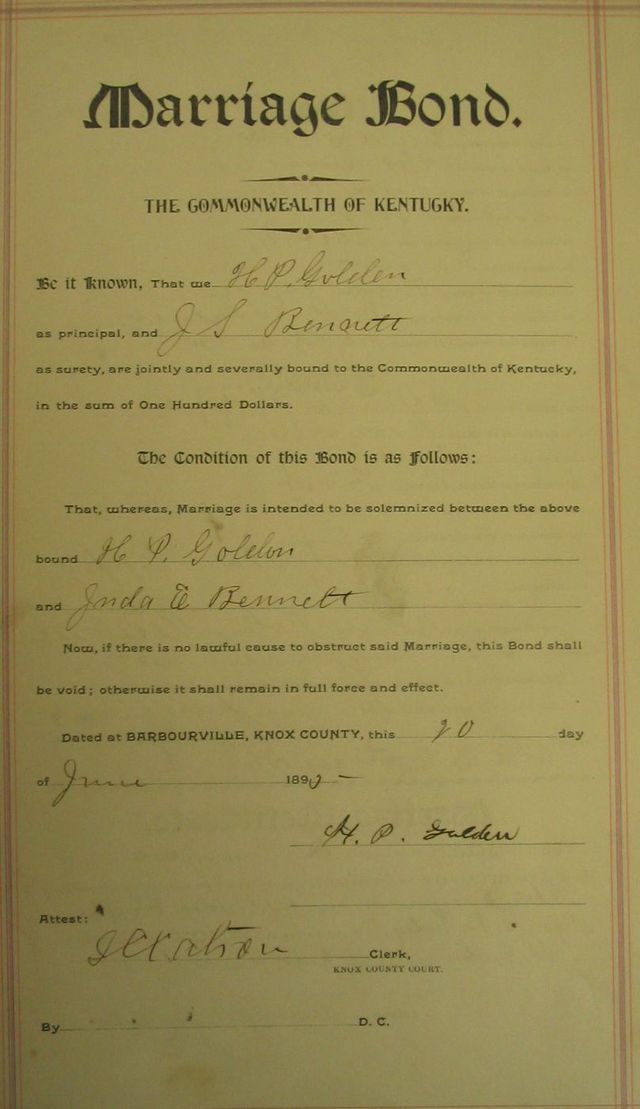 Marriage Bond.
THE COMMONWEALTH OF KENTUCKY.
Be it Known, That we H P. Golden
as principal, and J S Bennett
as surety, are jointly and severally bound to the Commonwealth of Kentucky,
in the sum of One Hundred Dollars.
The Condition of this Bond is as Follows:
That, whereas, Marriage is intended to be solemnized between the above
bound H P. Golden
and Inda E Bennett
Now, if there is no lawful cause to obstruct said Marriage, this Bond shall
be void; otherwise it shall remain in full force and effect.
Dated at BARBOURVILLE, KNOX COUNTY, this 20 day
of June 189
H. P. Golden
Attest:
Clerk,
KNOX COUNTY COURT.
By D. C.